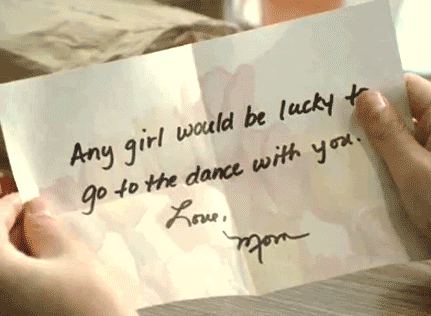 Any girl would be lucky to
go to the dance with you.
Love,
Mom